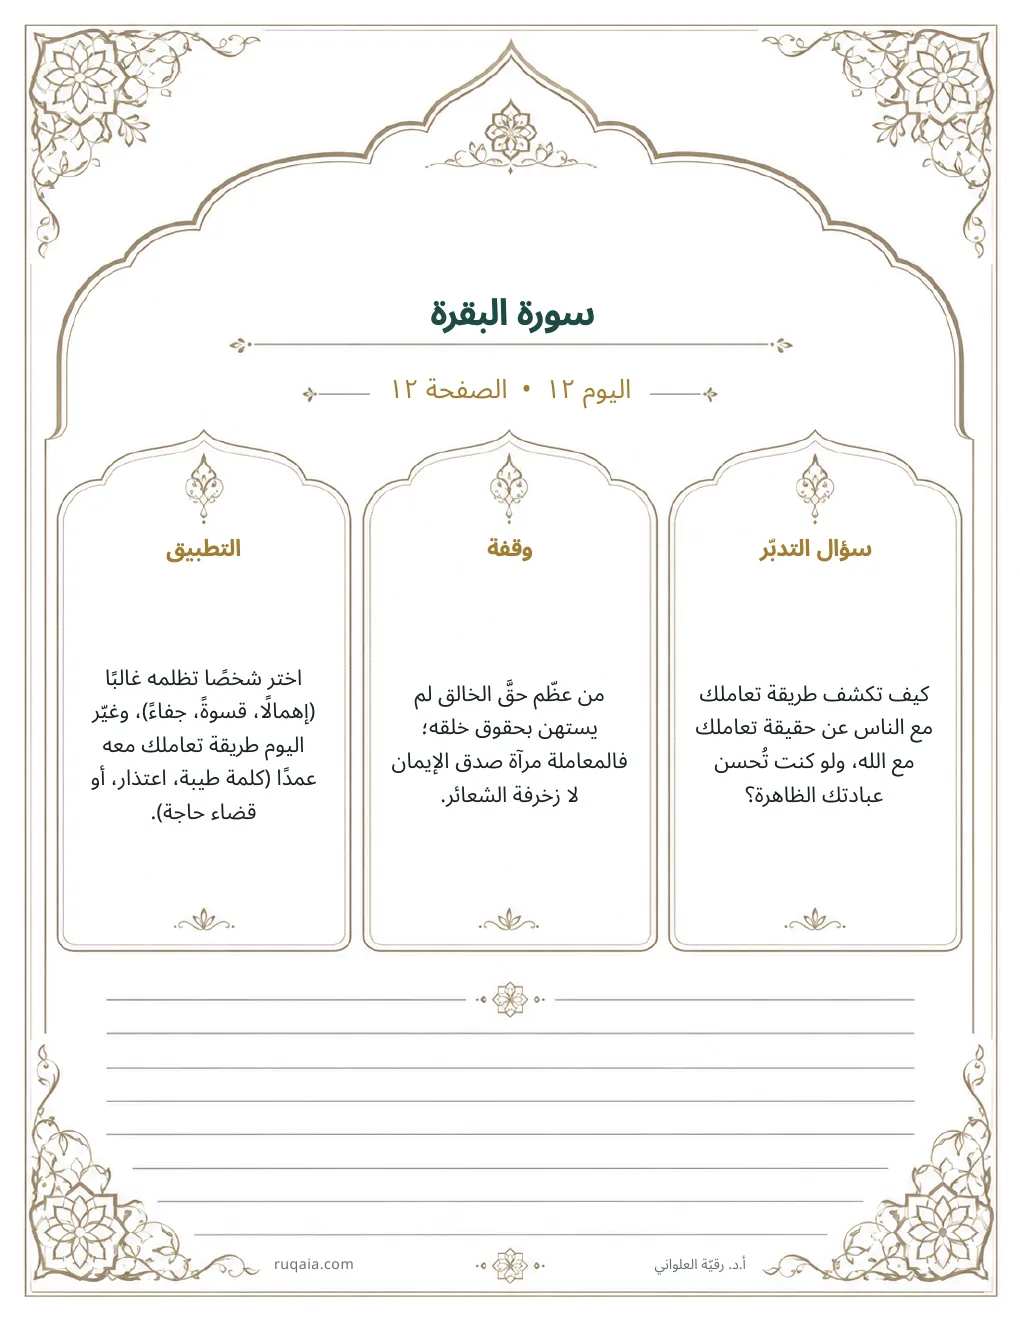 سورة البقرة
اليوم ١٢ • الصفحة ١٢
سؤال التدبّر
كيف تكشف طريقة تعاملك
مع الناس عن حقيقة تعاملك
مع الله، ولو كنت تُحسن
عبادتك الظاهرة؟
وقفة
من عظّم حقَّ الخالق لم
يستهن بحقوق خلقه؛
فالمعاملة مرآة صدق الإيمان
لا زخرفة الشعائر.
التطبيق
اختر شخصًا تظلمه غالبًا
(إهمالًا، قسوةً، جفاءً)، وغيّر
اليوم طريقة تعاملك معه
عمدًا (كلمة طيبة، اعتذار، أو
قضاء حاجة).
أ.د. رقيّة العلواني
ruqaia.com